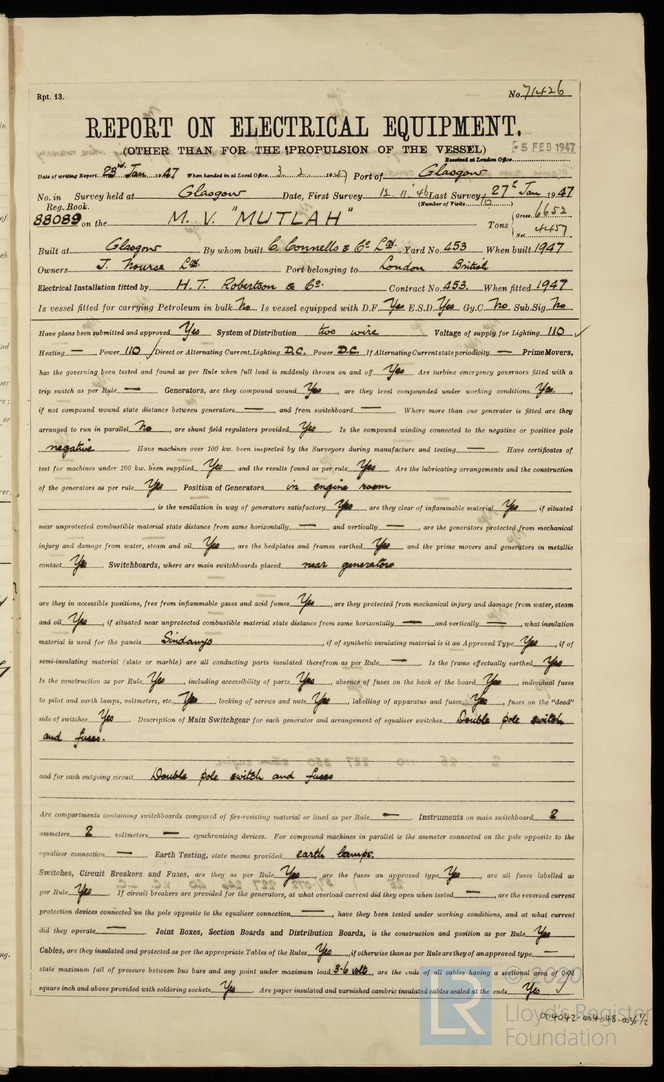 Rpt. 13.
No. 71426
REPORT ON ELECTRICAL EQUIPMENT.
(OTHER THAN FOR THE PROPULSION OF THE VESSEL)
-5 FEB 1947
Received at London Office
Date of writing Report 23rd Jan 1947 When handed in at Local Office 3. 2. 1947 Port of Glasgow
No. in Survey held at Glasgow Date, First Survey 12. 11. '46 Last Survey 27th Jan 1947
Reg. Book. (Number of Visits )
88089 on the M. V. "MUTLAH" Tons { Gross 6652
Net 4457
Built at Glasgow By whom built C. Connells & Co Ltd. Yard No. 453 When built 1947
Owners J. Nourse Ltd. Port belonging to London British
Electrical Installation fitted by H. T. Robertson & Co. Contract No. 453 When fitted 1947
Is vessel fitted for carrying Petroleum in bulk No Is vessel equipped with D.F. Yes E.S.D. Yes Gy.C. No Sub.Sig. No
Have plans been submitted and approved Yes System of Distribution two wire Voltage of supply for Lighting 110
Heating — Power 110 Direct or Alternating Current, Lighting D.C. Power D.C. If Alternating Current state periodicity — Prime Movers,
has the governing been tested and found as per Rule when full load is suddenly thrown on and off Yes Are turbine emergency governors fitted with a
trip switch as per Rule — Generators, are they compound wound Yes, are they level compounded under working conditions Yes.,
if not compound wound state distance between generators — and from switchboard — Where more than one generator is fitted are they
arranged to run in parallel No, are shunt field regulators provided Yes. Is the compound winding connected to the negative or positive pole
negative Have machines over 100 kw. been inspected by the Surveyors during manufacture and testing — Have certificates of
test for machines under 100 kw. been supplied Yes and the results found as per rule Yes Are the lubricating arrangements and the construction
of the generators as per rule Yes Position of Generators in engine room
, is the ventilation in way of generators satisfactory Yes, are they clear of inflammable material Yes, if situated
near unprotected combustible material state distance from same horizontally — and vertically —, are the generators protected from mechanical
injury and damage from water, steam and oil Yes, are the bedplates and frames earthed Yes and the prime movers and generators in metallic
contact Yes Switchboards, where are main switchboards placed near generators
are they in accessible positions, free from inflammable gases and acid fumes Yes, are they protected from mechanical injury and damage from water, steam
and oil Yes, if situated near unprotected combustible material state distance from same horizontally — and vertically —, what insulation
material is used for the panels Sindanyo, if of synthetic insulating material is it an Approved Type Yes, if of
semi-insulating material (slate or marble) are all conducting parts insulated therefrom as per Rule — Is the frame effectually earthed Yes
Is the construction as per Rule Yes, including accessibility of parts Yes, absence of fuses on the back of the board Yes, individual fuses
to pilot and earth lamps, voltmeters, etc. Yes locking of screws and nuts Yes, labelling of apparatus and fuses Yes, fuses on the "dead"
side of switches Yes Description of Main Switchgear for each generator and arrangement of equaliser switches Double pole switch
and fuses.
and for each outgoing circuit Double pole switch and fuses
Are compartments containing switchboards composed of fire-resisting material or lined as per Rule — Instruments on main switchboard 2
ammeters 2 voltmeters — synchronising devices. For compound machines in parallel is the ammeter connected on the pole opposite to the
equaliser connection — Earth Testing, state means provided earth lamps.
Switches, Circuit Breakers and Fuses, are they as per Rule Yes, are the fuses an approved type Yes, are all fuses labelled as
per Rule Yes If circuit breakers are provided for the generators, at what overload current did they open when tested —, are the reversed current
protection devices connected on the pole opposite to the equaliser connection —, have they been tested under working conditions, and at what current
did they operate — Joint Boxes, Section Boards and Distribution Boards, is the construction and position as per Rule Yes
Cables, are they insulated and protected as per the appropriate Tables of the Rules Yes, if otherwise than as per Rule are they of an approved type —,
state maximum fall of pressure between bus bars and any point under maximum load 3·6 volts, are the ends of all cables having a sectional area of 0·01
square inch and above provided with soldering sockets Yes Are paper insulated and varnished cambric insulated cables sealed at the ends Yes
© 2020
LR
Lloyd's Register
Foundation